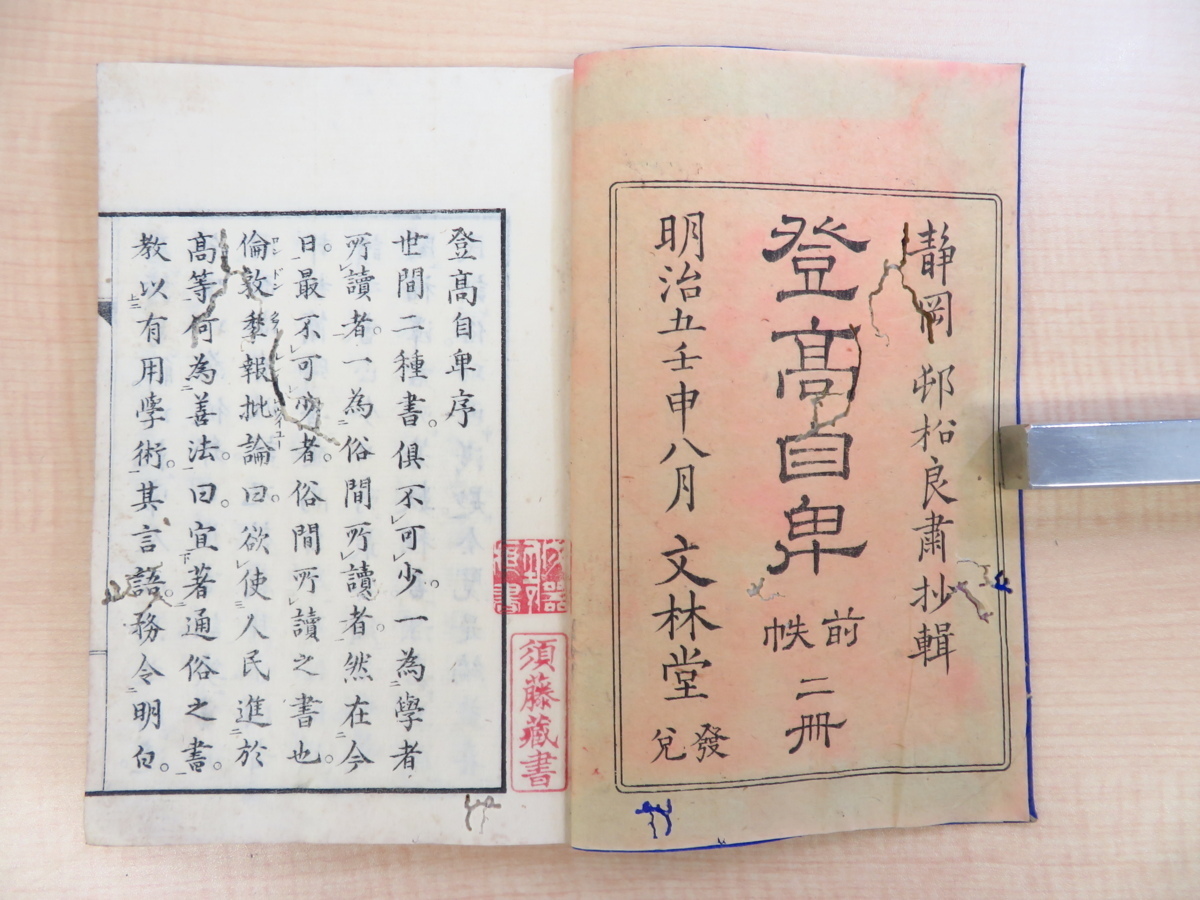 静岡 邨松良肅抄輯
登髙自卑
前帙
二冊
明治五壬申八月 文林堂
發兌
登髙自卑序
世間二種書。俱不可少。一為學者
所讀者。一為俗間所讀者。然在今
日。最不可少者。俗間所讀之書也。
倫敦黎報批論曰。欲使人民進於
髙等何為善法。曰。宜著通俗之書。
教以有用學術。其言語。務令明白。
須藤藏書